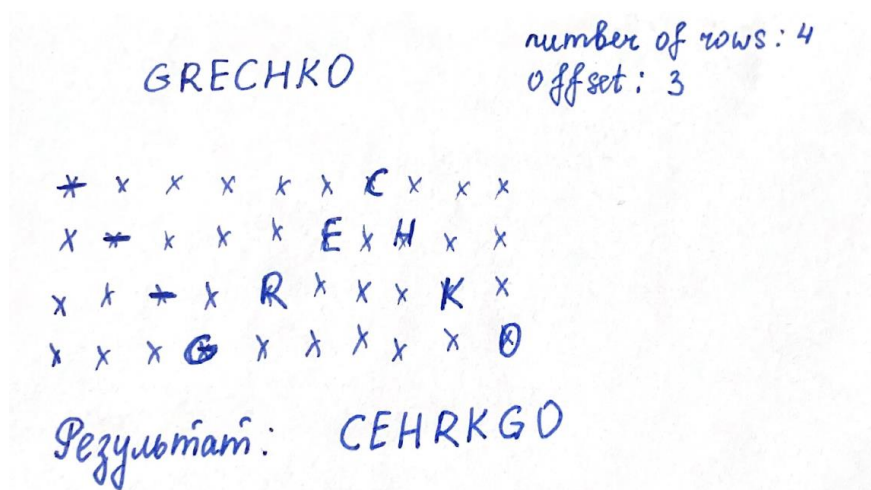 number of rows: 4
GRECHKO
offset: 3
* x x x x x C x x x
x * x x x E x H x x
x x * x R x x x K x
x x x G x x x x x O
Результат: CEHRKGO